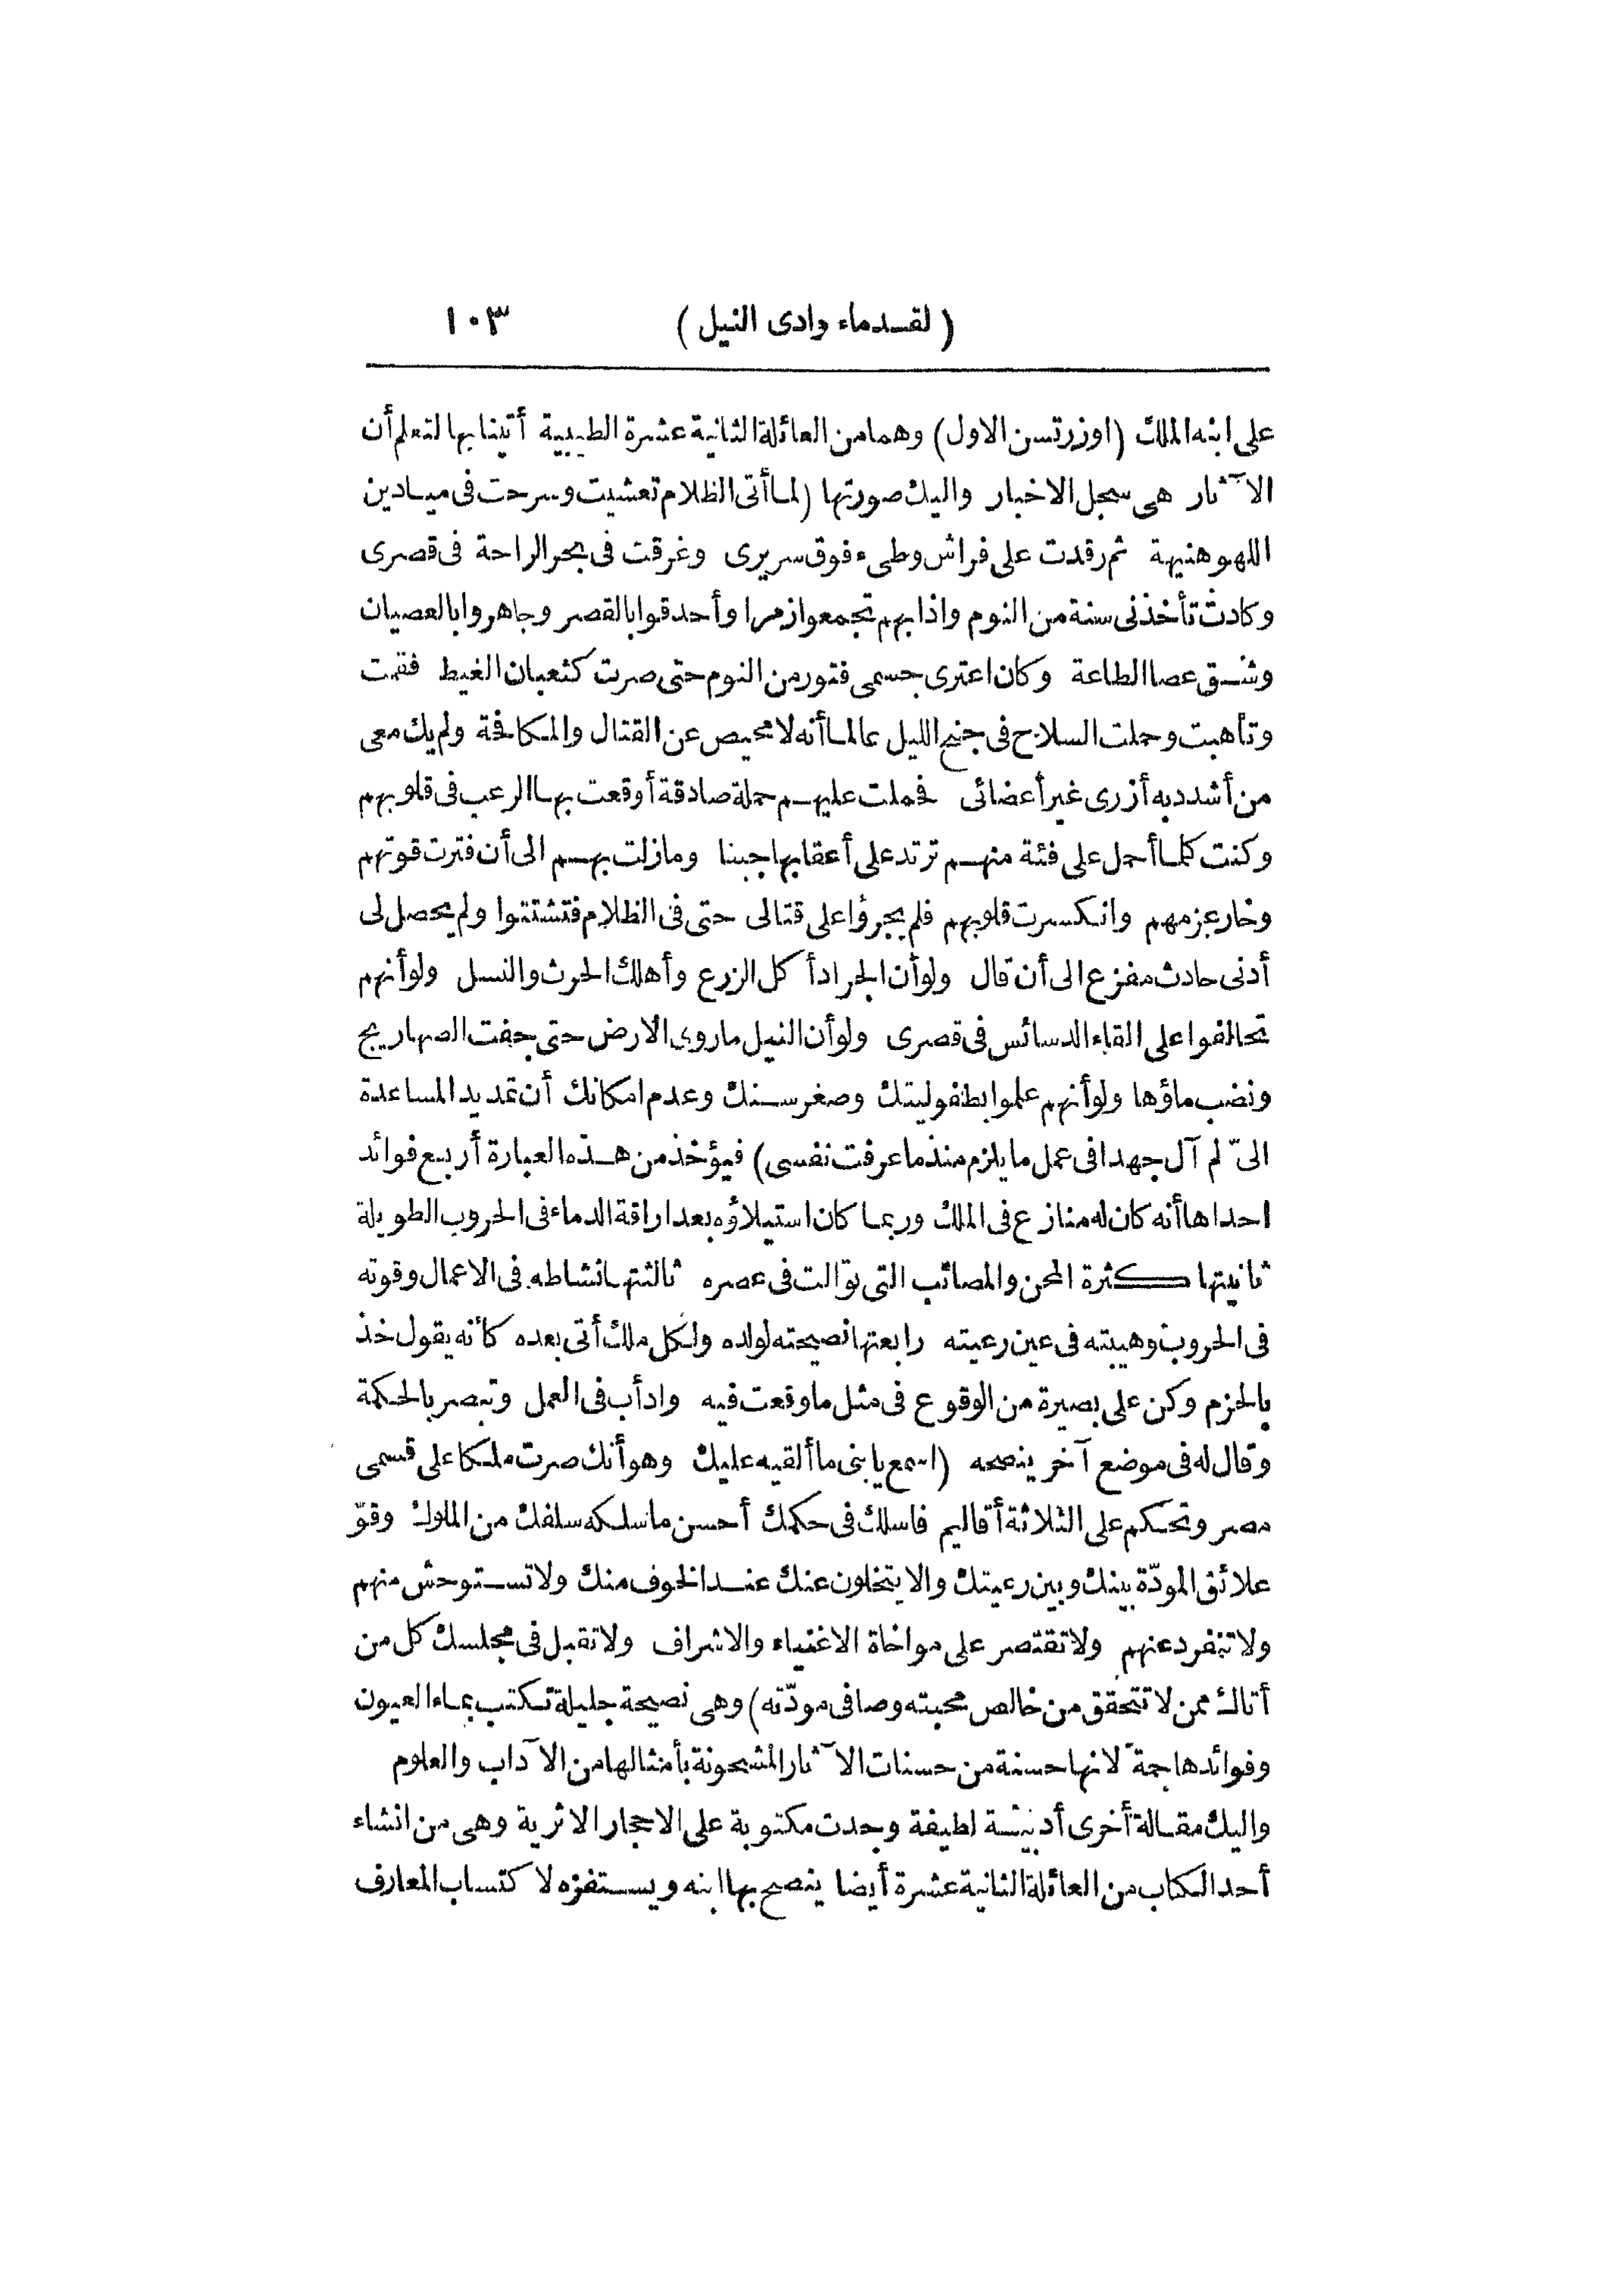 (لقدماء وادى النيل) ١٠٣
على ابنه الملك (اوزرتسن الاول) وهما من العائلة الثانية عشرة الطيبية أتينا بها لتعلم أن
الآثار هى سجل الاخبار واليك صورتها (لما أتى الظلام تعشيت وسرحت فى ميادين
اللهو هنيهة ثم رقدت على فراش وطىء فوق سريرى وغرقت فى بحر الراحة فى قصرى
وكادت تأخذنى سنة من النوم واذا بهم تجمعوا زمرا وأحدقوا بالقصر وجاهروا بالعصيان
وشق عصا الطاعة وكان اعترى جسمى فتور من النوم حتى صرت كثعبان الغيط فقمت
وتأهبت وحملت السلاح فى جنح الليل عالما أنه لا محيص عن القتال والمكافحة ولم يك معى
من أشدد به أزرى غير أعضائى فحملت عليهم حملة صادقة أوقعت بها الرعب فى قلوبهم
وكنت كلما أحمل على فئة منهم ترتد على أعقابها جبنا ومازلت بهم الى أن فترت قوتهم
وخار عزمهم وانكسرت قلوبهم فلم يجرؤا على قتالى حتى فى الظلام فتشتتوا ولم يحصل لى
أدنى حادث مفزع الى أن قال ولو أن الجراد أكل الزرع وأهلك الحرث والنسل ولو أنهم
تحالفوا على القاء الدسائس فى قصرى ولو أن النيل ماروى الارض حتى جفت الصهاريج
ونضب ماؤها ولو أنهم علموا بطفوليتك وصغر سنك وعدم امكانك أن تمد يد المساعدة
الىّ لم آل جهدا فى عمل ما يلزم منذ ما عرفت نفسى) فيؤخذ من هذه العبارة أربع فوائد
احداها أنه كان له منازع فى الملك وربما كان استيلاؤه بعد اراقة الدماء فى الحروب الطويلة
ثانيتها كثرة المحن والمصائب التى توّالت فى عصره ثالثتها نشاطه فى الاعمال وقوته
فى الحروب وهيبته فى عين رعيته رابعتها نصيحته لولده ولكل ملك أتى بعده كأنه يقول خذ
بالحزم وكن على بصيرة من الوقوع فى مثل ما وقعت فيه وادأب فى العمل وتبصر بالحكمة
وقال له فى موضع آخر ينصحه (اسمع يا بنى ما ألقيه عليك وهو أنك صرت ملكا على قسمى
مصر وتحكم على الثلاثة أقاليم فاسلك فى حكمك أحسن ماسلكه سلفك من الملوك وقوّ
علائق المودّة بينك وبين رعيتك والا يتخلون عنك عند الخوف منك ولا تستوحش منهم
ولا تنفرد عنهم ولا تقتصر على مواخاة الاغنياء والاشراف ولا تقبل فى مجلسك كل من
أتاك ممن لا تتحقق من خالص محبته وصافى مودّته) وهى نصيحة جليلة تكتب بماء العيون
وفوائدها جمة لانها حسنة من حسنات الآثار المشحونة بأمثالها من الآداب والعلوم
واليك مقالة أخرى أدبية لطيفة وجدت مكتوبة على الاحجار الاثرية وهى من انشاء
أحد الكتاب من العائلة الثانية عشرة أيضا ينصح بها ابنه ويستفزه لاكتساب المعارف